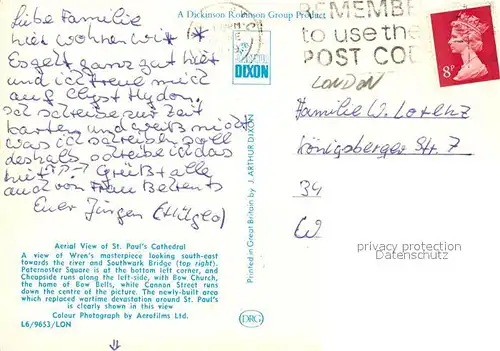 A Dickinson Robinson Group Product
Liebe Familie
hier wohnen wir
Es geht ganz gut hier
und ich freue mich
auf Clyst Hydon.
Ich schreibe zur Zeit
Karten und weiß nicht
was ich schreiben soll
deshalb schreibe ich das
hier. Grüßt alle
auch von Frau
Euer Jürgen
REMEMBER
to use the
POST CODE
8P
DIXON
LONDON
Familie W. Lorenz
Königsberger Str. 7
34
W
privacy protection
watermark
Printed in Great Britain by J. ARTHUR DIXON
Aerial View of St. Paul's Cathedral
A view of Wren's masterpiece looking south-east
towards the river and Southwark Bridge (top right).
Paternoster Square is at the bottom left corner, and
Cheapside runs along the left-side, with Bow Church,
the home of Bow Bells, while Cannon Street runs
down the centre of the picture. The newly-built area
which replaced wartime devastation around St. Paul's
is clearly shown in this view
Colour Photograph by Aerofilms Ltd.
L6/9653/LON
DRG